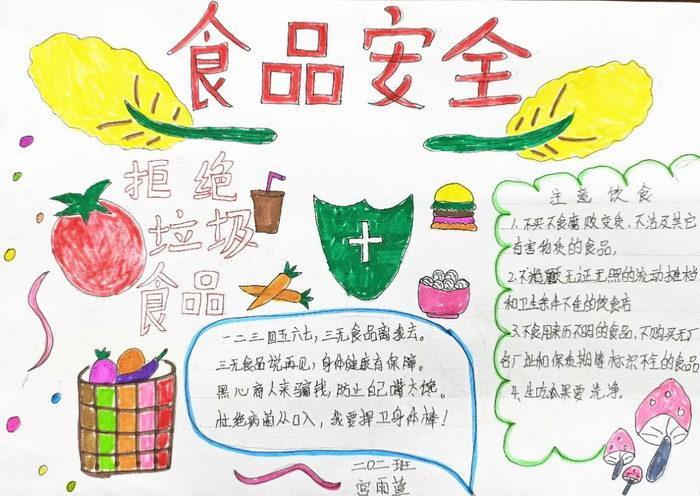 食品安全
拒绝
垃圾
食品
注意饮食
1.不买不食腐败变质、不洁及其它
有害物质的食品,
2.不光顾无证无照的流动摊档
和卫生条件不佳的饮食店
3.不食用来历不明的食品,不购买无厂
名厂址和保质期等标识不全的食品
4.生吃瓜果要洗净。
一二三四五六七,三无食品离我去。
三无食品说再见,身体健康有保障。
黑心商人来骗钱,防止自己嘴太馋。
杜绝病菌从口入,我要捍卫身体棒!
二〇二班
宫雨萱